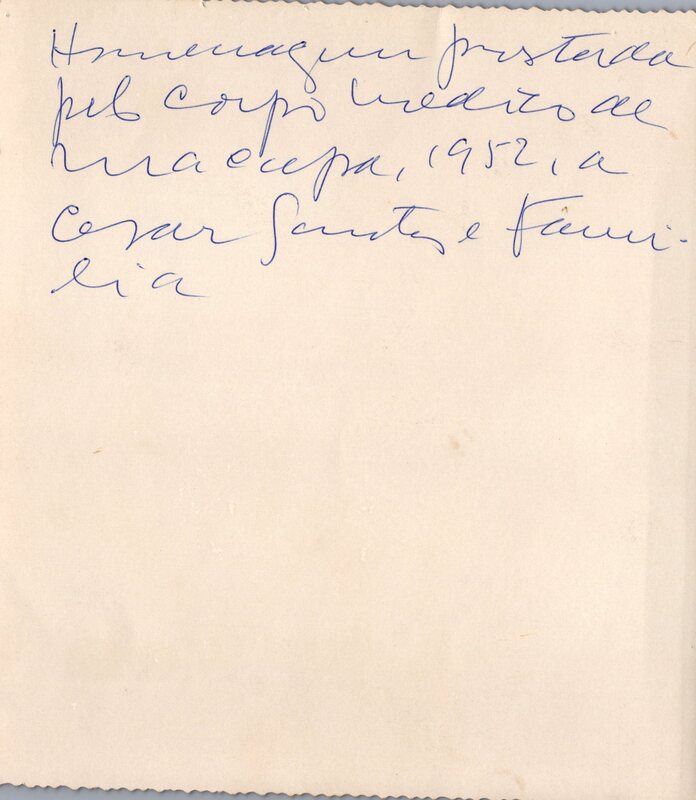 Homenagem prestada
pelo Corpo Medico de
Macapa, 1952, a
Cesar Santos e Fami-
lia